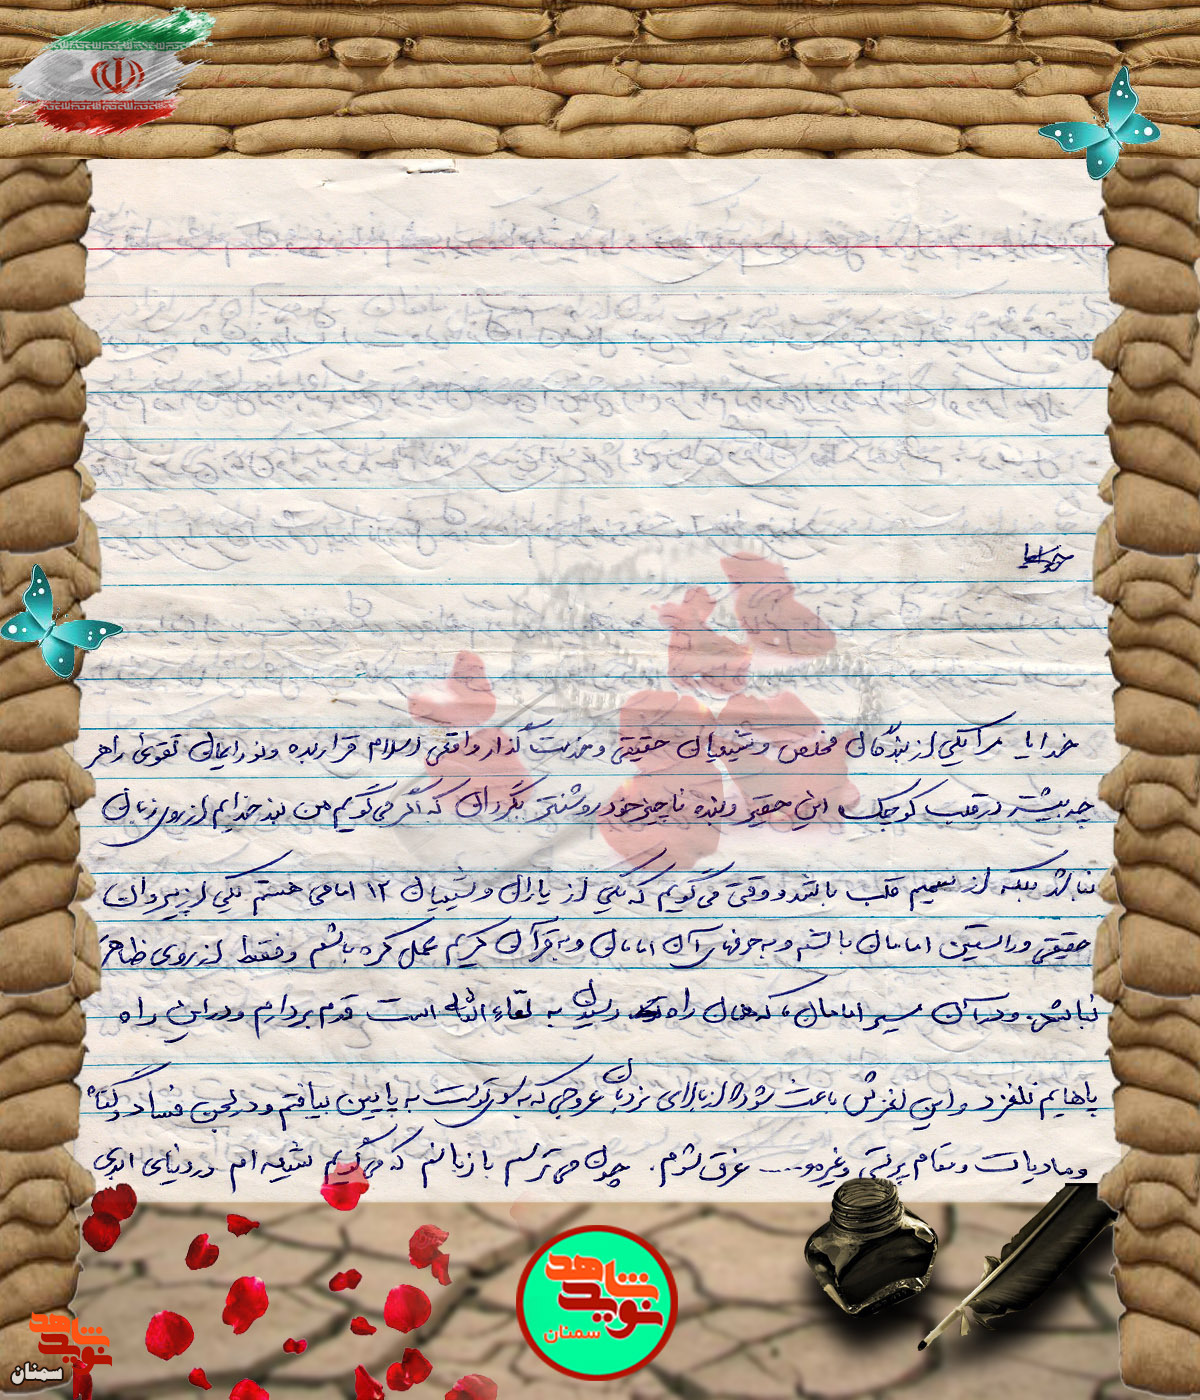 خدایا
خدایا مرا یکی از بندگان مخلص و شیعیان حقیقی و خدمت گذار واقعی اسلام قرار بده و نور ایمان تقوی را هر
چه بیشتر در قلب کوچک این حقیر و بنده ناچیز خود روشنتر بگردان که اگر می گویم من بنده خدایم از روی زبان
نباشد بلکه از صمیم قلب باشد و وقتی می گویم که یکی از یاران و شیعیان ۱۲ امامی هستم یکی از پیروان
حقیقی و راستین امامان باشم و به حرفهای آن امامان و به قرآن کریم عمل کرده باشم و فقط از روی ظاهر
نباشد. و در آن مسیر امامان، که همان راه رسیدن به لقاء الله است قدم بردارم و در این راه
پاهایم نلغزد و این لغزش باعث شود از بالای نردبان عروجی که به سوی تست به پایین بیافتم و در لجن فساد و گناه
و مادیات و مقام پرستی و غیره و.... غرق شوم. چون می ترسم با زبانم که می گویم شیعه ام در دنیای ابدی
نوید شاهد
سمنان
نوید شاهد
سمنان